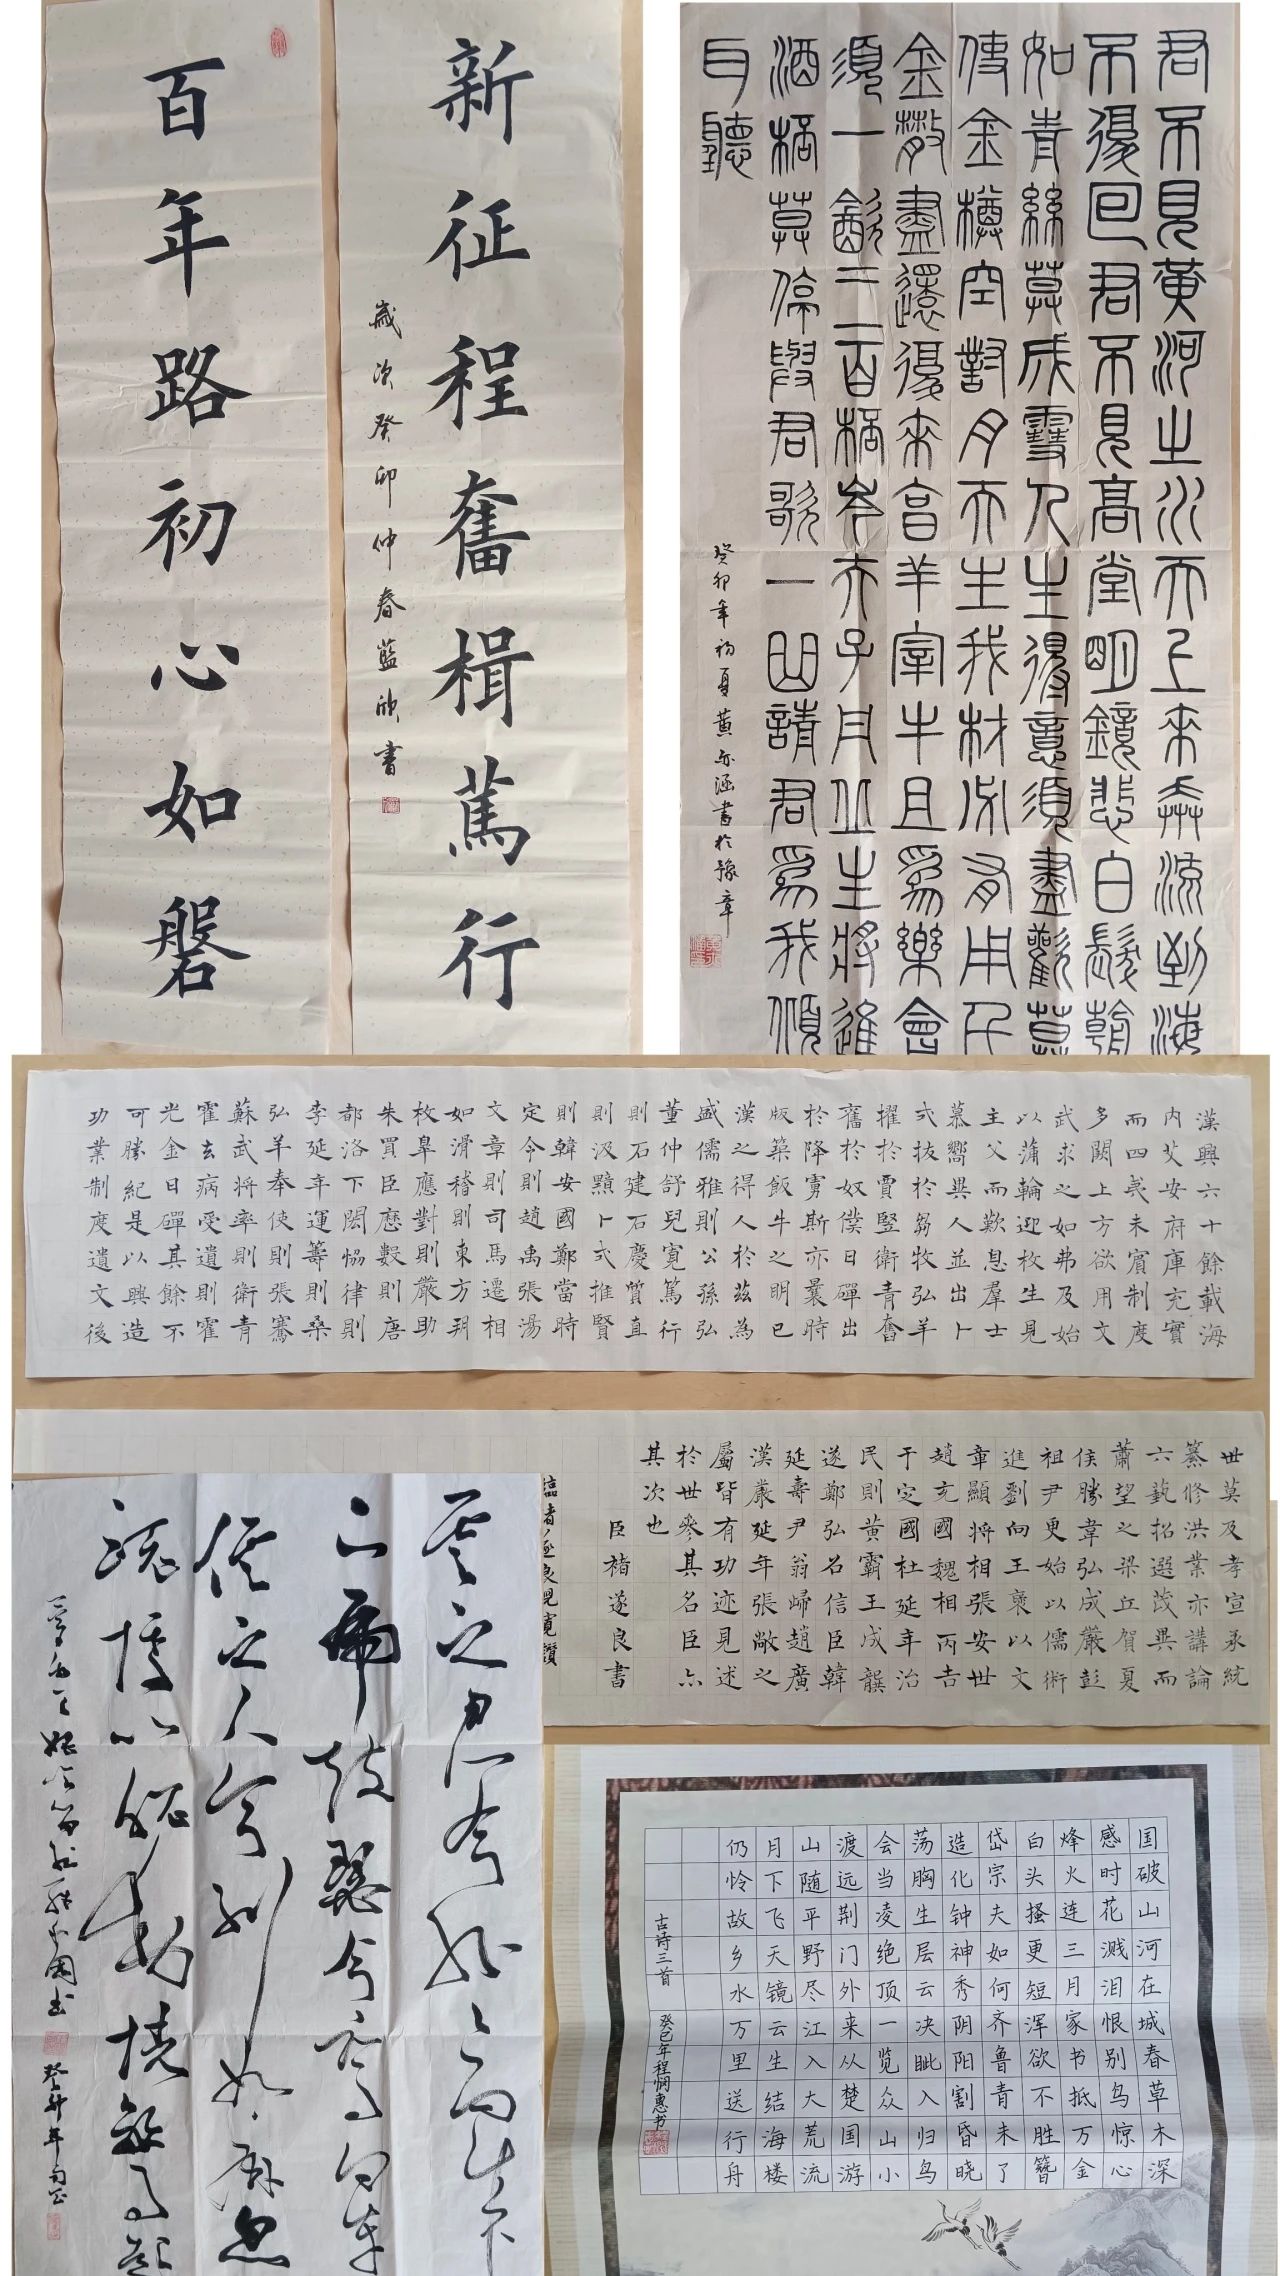 百年路初心如磐
新征程奮楫篤行
歲次癸卯仲春藍欣書
君不見黃河之水天上來奔流到海
不復回君不見高堂明鏡悲白髮朝
如青絲莫成雪人生得意須盡歡莫
使金樽空對月天生我材必有用千
金散盡還復來烹羊宰牛且爲樂會
須一飲三百桮岑夫子丹丘生將進
酒桮莫停與君歌一曲請君爲我傾
耳聽
癸卯年初夏黃亦涵書於豫章
漢興六十餘載海
内艾安府庫充實
而四夷未賓制度
多闕上方欲用文
武求之如弗及始
以蒲輪迎枚生見
主父而歎息羣士
慕嚮異人並出卜
式拔於芻牧弘羊
擢於賈竪衛青奮
舊於奴僕日磾出
於降虜斯亦曩時
版築飯牛之明已
漢之得人於茲為
盛儒雅則公孫弘
董仲舒兒寬篤行
則石建石慶質直
則汲黯卜式推賢
則韓安國鄭當時
定令則趙禹張湯
文章則司馬遷相
如滑稽則東方朔
枚皋應對則嚴助
朱買臣歷數則唐
都洛下閎恊律則
李延年運籌則桑
弘羊奉使則張騫
蘇武將率則衛青
霍去病受遺則霍
光金日磾其餘不
可勝紀是以興造
功業制度遺文後
世莫及孝宣承統
纂修洪業亦講論
六藝招選茂異而
蕭望之梁丘賀夏
侯勝韋弘成嚴彭
祖尹更始以儒術
進劉向王褒以文
章顯將相張安世
趙充國魏相丙吉
于定國杜延年治
民則黃霸王成龔
遂鄭弘召信臣韓
延壽尹翁歸趙廣
漢嚴延年張敞之
屬皆有功迹見述
於世參其名臣亦
其次也
臣褚遂良書
雲之君兮紛紛而來下
虎鼓瑟兮鸞回車
仙之人兮列如麻忽
魂悸以魄動怳驚起
癸卯年
国破山河在城春草木深
感时花溅泪恨别鸟惊心
烽火连三月家书抵万金
白头搔更短浑欲不胜簪
岱宗夫如何齐鲁青未了
造化钟神秀阴阳割昏晓
荡胸生层云决眦入归鸟
会当凌绝顶一览众山小
渡远荆门外来从楚国游
山随平野尽江入大荒流
月下飞天镜云生结海楼
仍怜故乡水万里送行舟
古诗三首
癸巳年程悯惠书